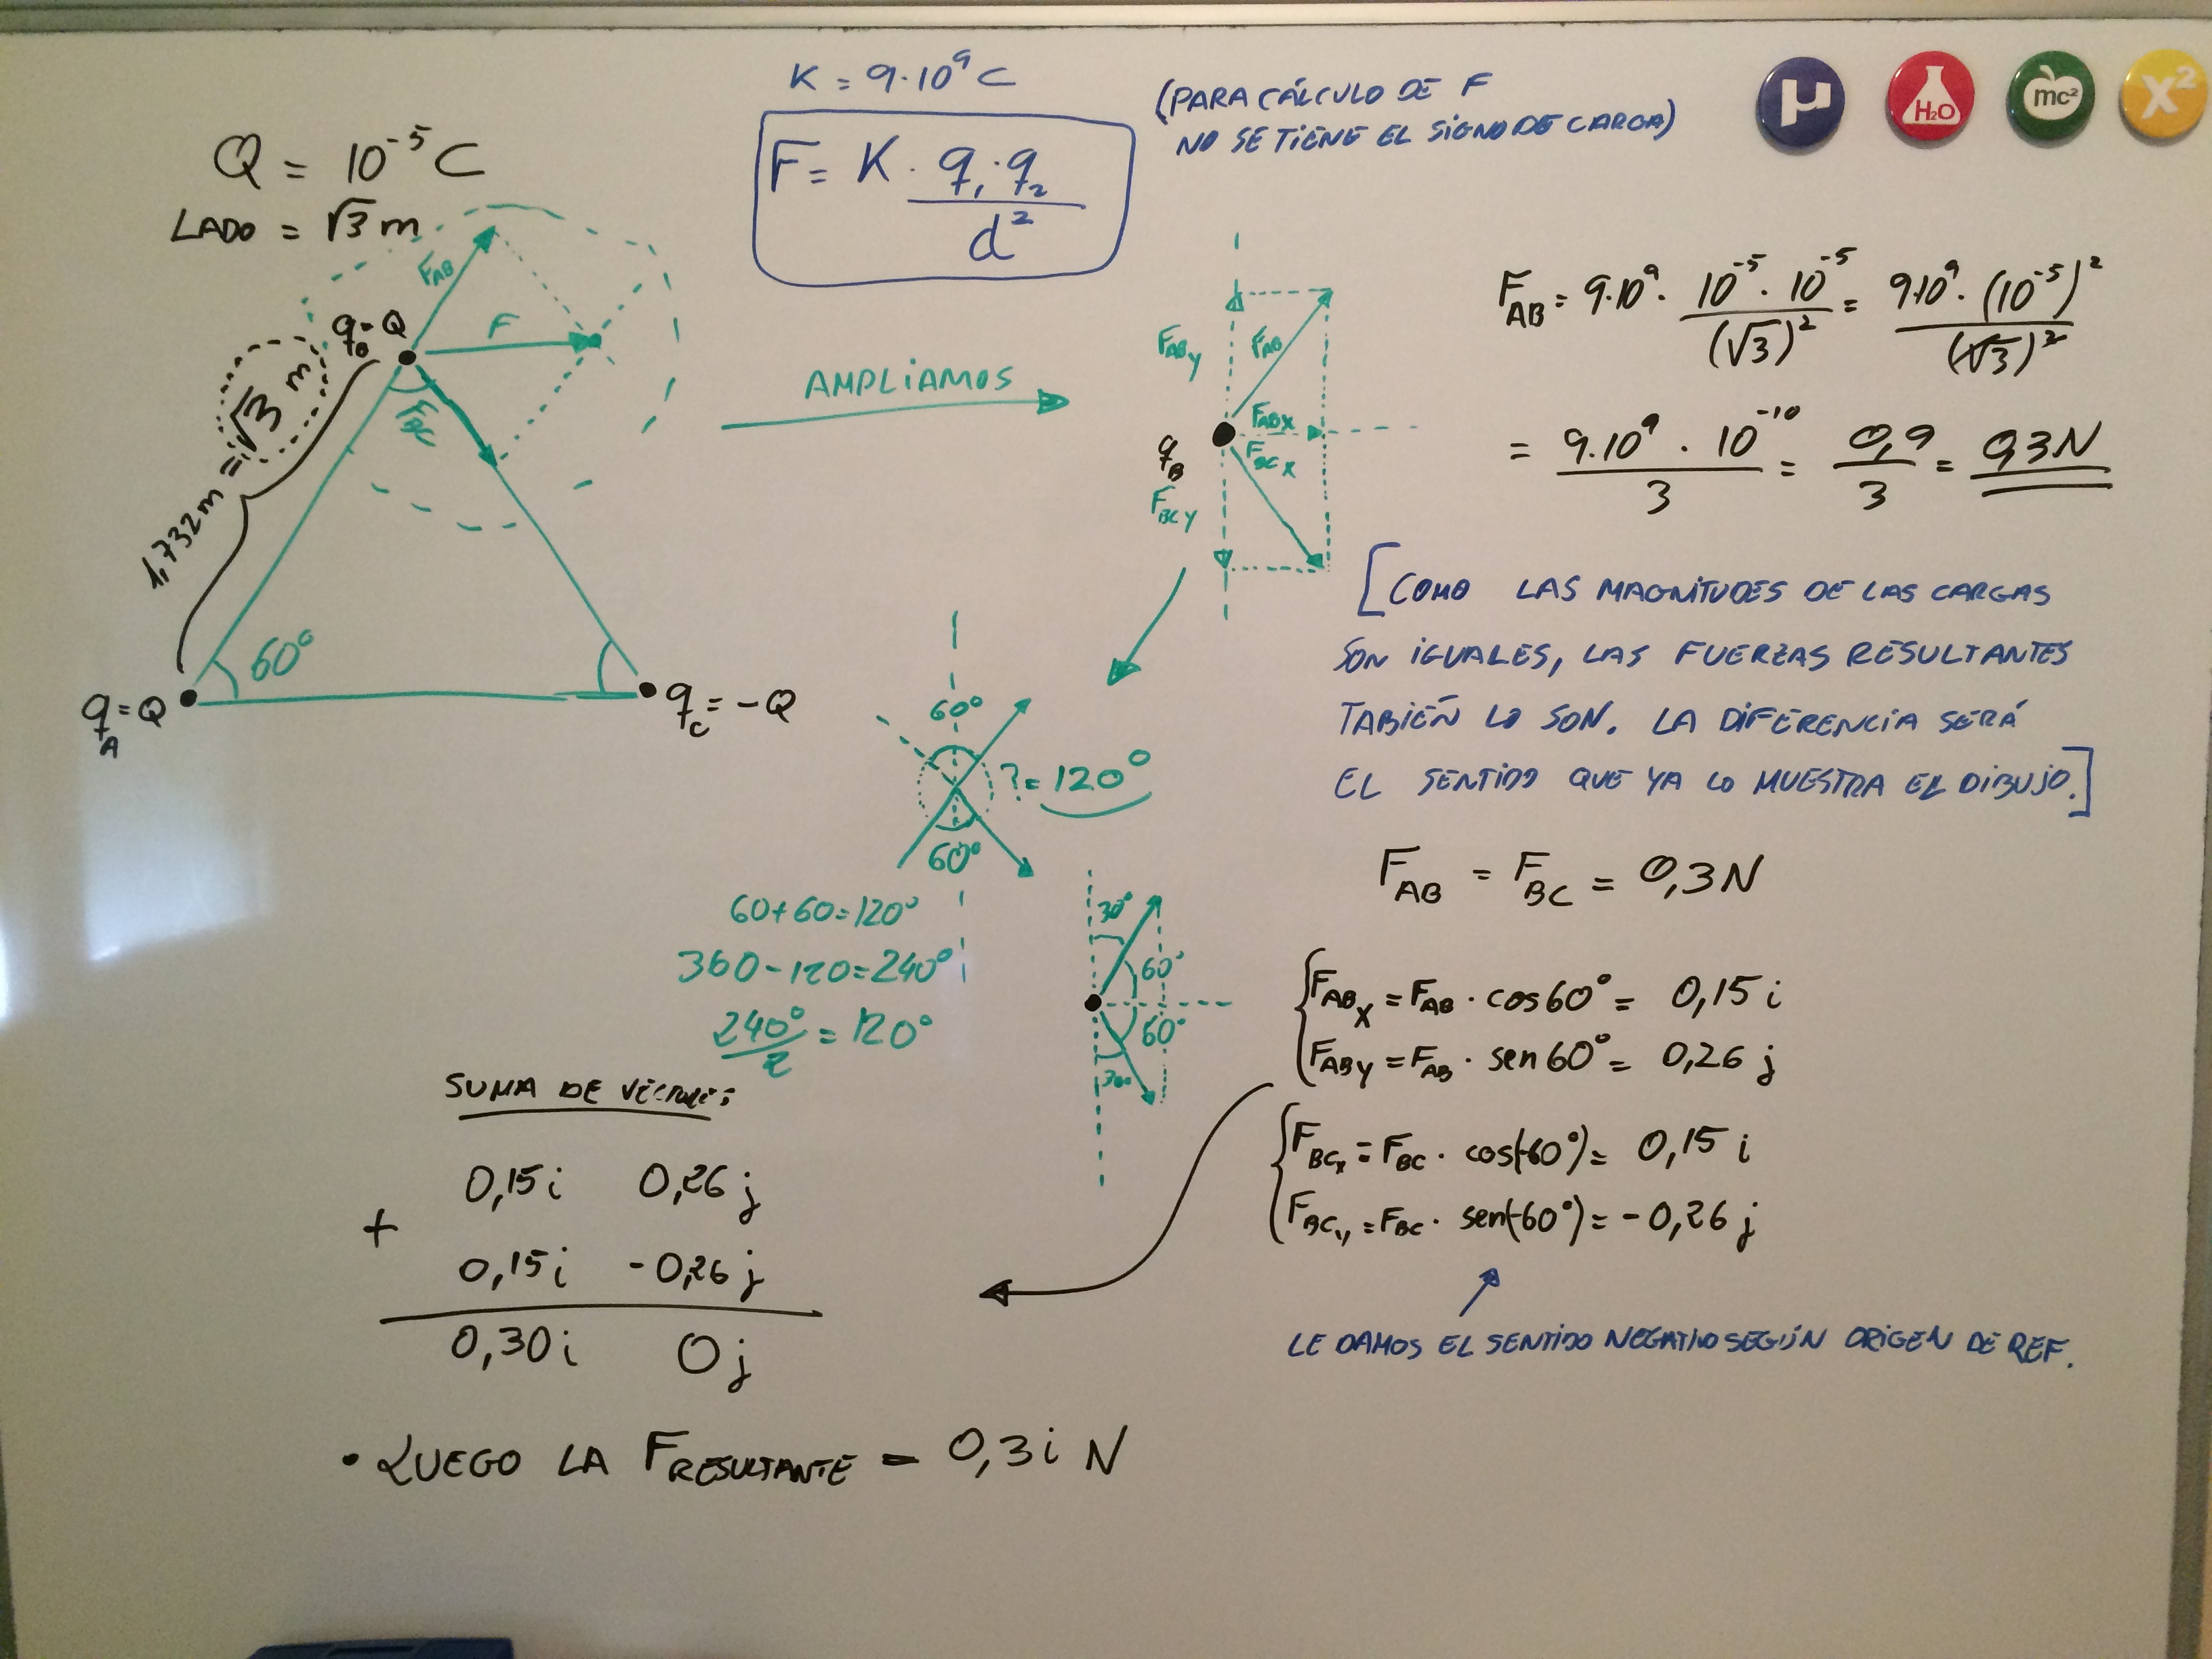 K = 9·10⁹ C
(PARA CÁLCULO DE F
NO SE TIENE EL SIGNO DE CARGA)
μ
H₂O
mc²
x²
Q = 10⁻⁵ C
LADO = √3 m
F = K · q₁·q₂ / d²
F_AB
q_B = Q
F
F_BC
1,732 m = √3 m
60°
q_A = Q
q_C = -Q
AMPLIAMOS
F_ABy
F_AB
F_ABx
F_BCx
q_B
F_BCy
60°
? = 120°
60°
60+60=120°
360-120=240°
240°/2 = 120°
30°
60°
60°
30°
F_AB = 9·10⁹ · 10⁻⁵ · 10⁻⁵ / (√3)² = 9·10⁹ · (10⁻⁵)² / (√3)²
= 9·10⁹ · 10⁻¹⁰ / 3 = 0,9 / 3 = 0,3 N
[COMO LAS MAGNITUDES DE LAS CARGAS
SON IGUALES, LAS FUERZAS RESULTANTES
TABIÉN LO SON. LA DIFERENCIA SERÁ
EL SENTIDO QUE YA LO MUESTRA EL DIBUJO.]
F_AB = F_BC = 0,3 N
F_ABX = F_AB · cos 60° = 0,15 i
F_ABY = F_AB · sen 60° = 0,26 j
F_BCx = F_BC · cos(-60°) = 0,15 i
F_BCy = F_BC · sen(-60°) = -0,26 j
LE DAMOS EL SENTIDO NEGATIVO SEGÚN ORIGEN DE REF.
SUMA DE VECTORES
0,15 i 0,26 j
+
0,15 i -0,26 j
0,30 i 0 j
· LUEGO LA F_RESULTANTE = 0,3 i N